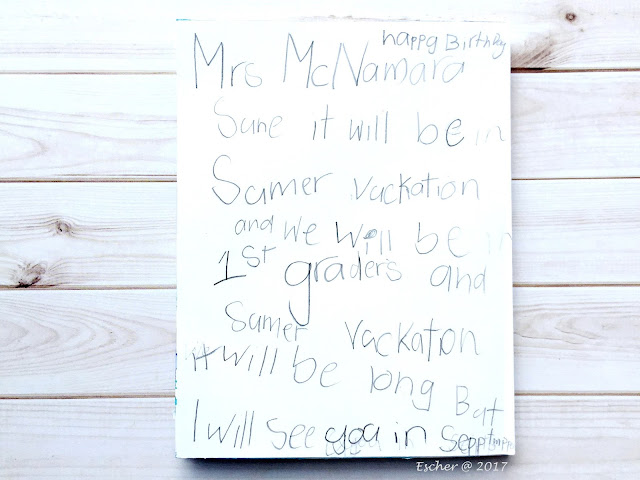 happy Birthday
Mrs McNamara
Sune it will be in
Sumer vackation
and we will be in
1st graders and
Sumer vackation
it will be long But
I will see you in Sepptmpr
Escher @ 2017